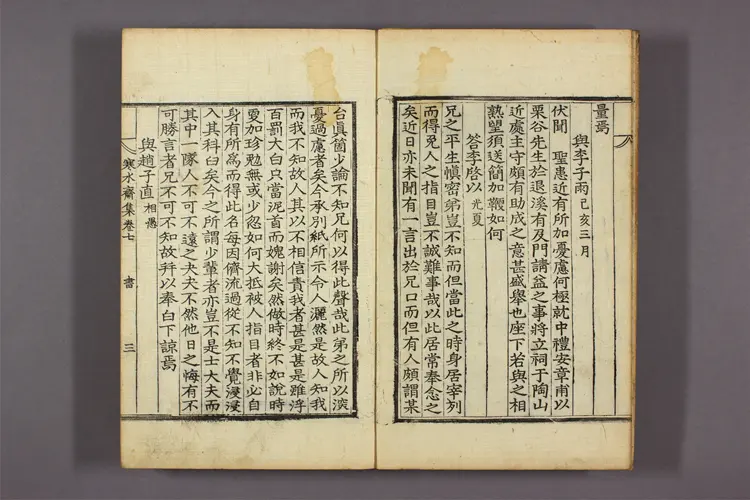 量焉
與李子雨 己亥三月
伏聞 聖患近有所加憂慮何極就中禮安章甫以
栗谷先生於退溪有及門請益之事將立祠于陶山
近處主守頗有助成之意甚盛擧也座下若與之相
熟望須送簡加鞭如何
答李啓以 光夏
兄之平生愼密弟豈不知而但當此之時身居宰列
而得免人之指目豈不誠難事哉以此居常奉念之
矣近日亦未聞有一言出於兄口而但有人頗謂某
台眞箇少論不知兄何以得此聲哉此弟之所以深
憂過慮者矣今承別紙所示令人灑然是故人知我
而我不知故人其以不相信責我者甚是甚是雖浮
百罰大白只當泥首而媿謝矣然做時終不如說時
更加珍勉無或少忽如何大抵被人指目者非必自
身有所爲而得此名每因儕流過從不知不覺浸浸
入其科臼矣今之所謂少輩者亦豈不是士大夫而
其中一隊人不可不遠之夫夫不然他日之悔有不
可勝言者兄不可不知故拜以奉白下諒焉
與趙子直 相愚
寒水齋集卷七 書 三